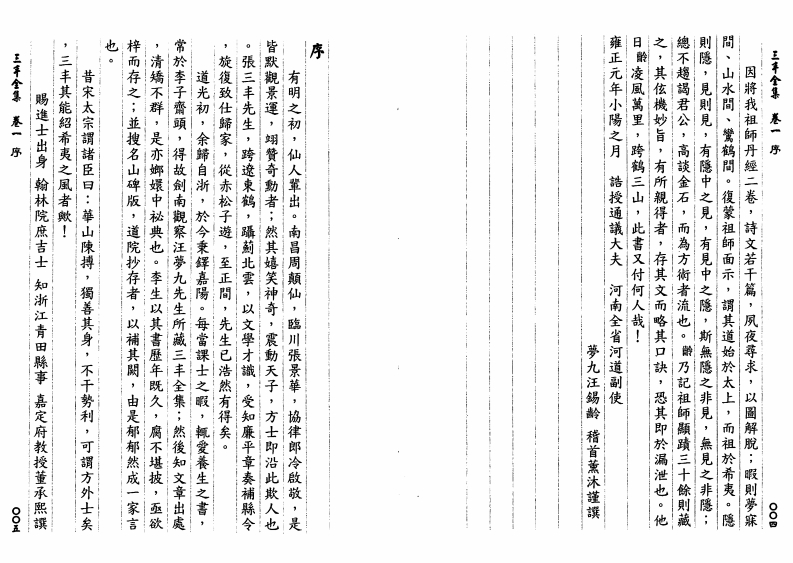 三丰全集　卷一　序
〇〇四
因將我祖師丹經二卷，詩文若干篇，夙夜尋求，以圖解脫；暇則夢寐
間、山水間、鸞鶴間。復蒙祖師面示，謂其道始於太上，而祖於希夷。隱
則隱，見則見，有隱中之見，有見中之隱，斯無隱之非見，無見之非隱；
總不趨謁君公，高談金石，而為方術者流也。齡乃記祖師顯蹟三十餘則藏
之，其弦機妙旨，有所親得者，存其文而略其口訣，恐其即於漏泄也。他
日齡凌風萬里，跨鶴三山，此書又付何人哉！
雍正元年小陽之月　誥授通議大夫　河南全省河道副使
夢九汪錫齡　稽首薰沐謹譔
序
有明之初，仙人輩出。南昌周顛仙，臨川張景華，協律郎冷啟敬，是
皆默觀景運，翊贊奇勳者；然其嬉笑神奇，震動天子，方士即沿此欺人也
。張三丰先生，跨遼東鶴，躡薊北雲，以文學才識，受知廉平章奏補縣令
，旋復致仕歸家，從赤松子遊，至正間，先生已浩然有得矣。
道光初，余歸自浙，於今秉鐸嘉陽。每當課士之暇，輒愛養生之書，
常於李子齋頭，得故劍南觀察汪夢九先生所藏三丰全集；然後知文章出處
，清矯不群，是亦嫏嬛中祕典也。李生以其書歷年既久，腐不堪披，亟欲
梓而存之；並搜名山碑版，道院抄存者，以補其闕，由是郁郁然成一家言
也。
昔宋太宗謂諸臣曰：華山陳摶，獨善其身，不干勢利，可謂方外士矣
，三丰其能紹希夷之風者歟！
賜進士出身　翰林院庶吉士　知浙江青田縣事　嘉定府教授董承熙譔
三丰全集　卷一　序
〇〇五